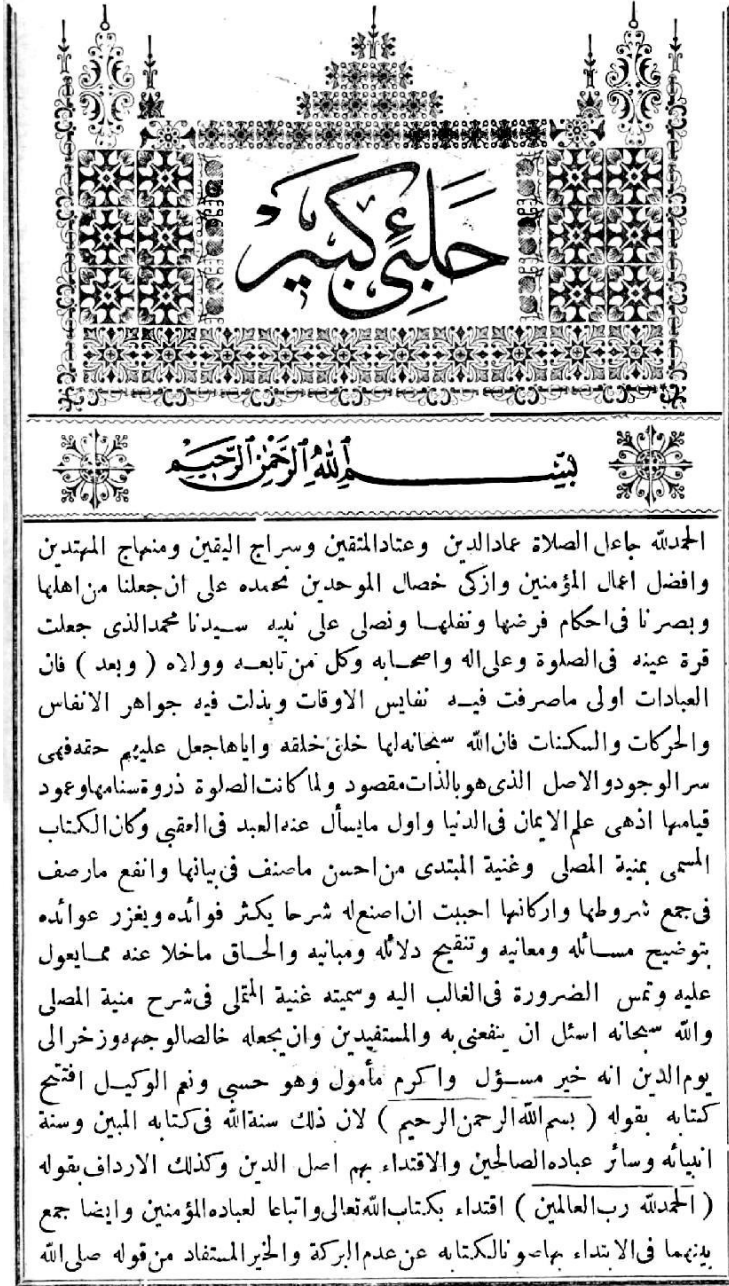 حلبئ كبير
بسم الله الرحمن الرحيم
الحمدلله جاعل الصلاة عمادالدين وعتادالمتقين وسراج اليقين ومنهاج المهتدين
وافضل اعمال المؤمنين وازكى خصال الموحدين نحمده على ان جعلنا من اهلها
وبصرنا فى احكام فرضها ونفلها ونصلى على نبيه سيدنا محمد الذى جعلت
قرة عينه فى الصلوة وعلى اله واصحابه وكل من تابعه ووالاه ( وبعد ) فان
العبادات اولى ماصرفت فيه نفايس الاوقات وبذلت فيه جواهر الانفاس
والحركات والسكنات فان الله سبحانه لها خلق خلقه واياها جعل عليهم حقه فهى
سر الوجود والاصل الذى هو بالذات مقصود ولما كانت الصلوة ذروة سنامها وعمود
قيامها اذهى علم الايمان فى الدنيا واول مايسأل عنه العبد فى العقبى وكان الكتاب
المسمى بمنية المصلى وغنية المبتدى من احسن ماصنف فى بيانها وانفع مارصف
فى جمع شروطها واركانها احببت ان اصنع له شرحا يكثر فوائده ويغزر عوائده
بتوضيح مسائله ومعانيه وتنقيح دلائله ومبانيه والحاق ماخلا عنه مما يعول
عليه وتمس الضرورة فى الغالب اليه وسميته غنية المتملى فى شرح منية المصلى
والله سبحانه اسئل ان ينفعنى به والمستفيدين وان يجعله خالصا لوجهه وزخرا لى
يوم الدين انه خير مسؤل واكرم مأمول وهو حسبى ونعم الوكيل افتتح
كتابه بقوله ( بسم الله الرحمن الرحيم ) لان ذلك سنة الله فى كتابه المبين وسنة
انبيائه وسائر عباده الصالحين والاقتداء بهم اصل الدين وكذلك الارداف بقوله
( الحمدلله رب العالمين ) اقتداء بكتاب الله تعالى واتباعا لعباده المؤمنين وايضا جمع
بينهما فى الابتداء بها صونا لكتابه عن عدم البركة والخير المستفاد من قوله صلى الله